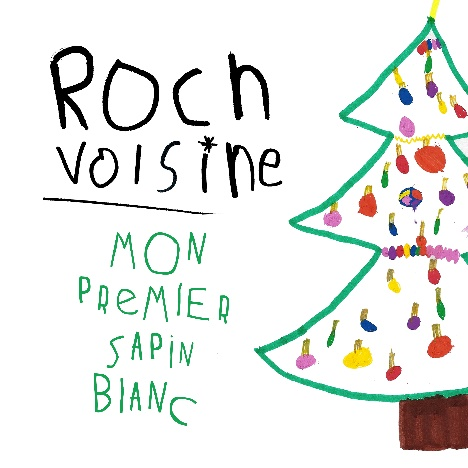 ROCH
VOISINE
MON
PREMIER
SAPIN
BLANC